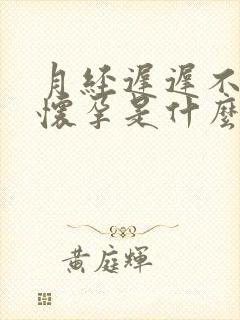 月经遲遲不
懷孕是什麼
黃庭輝